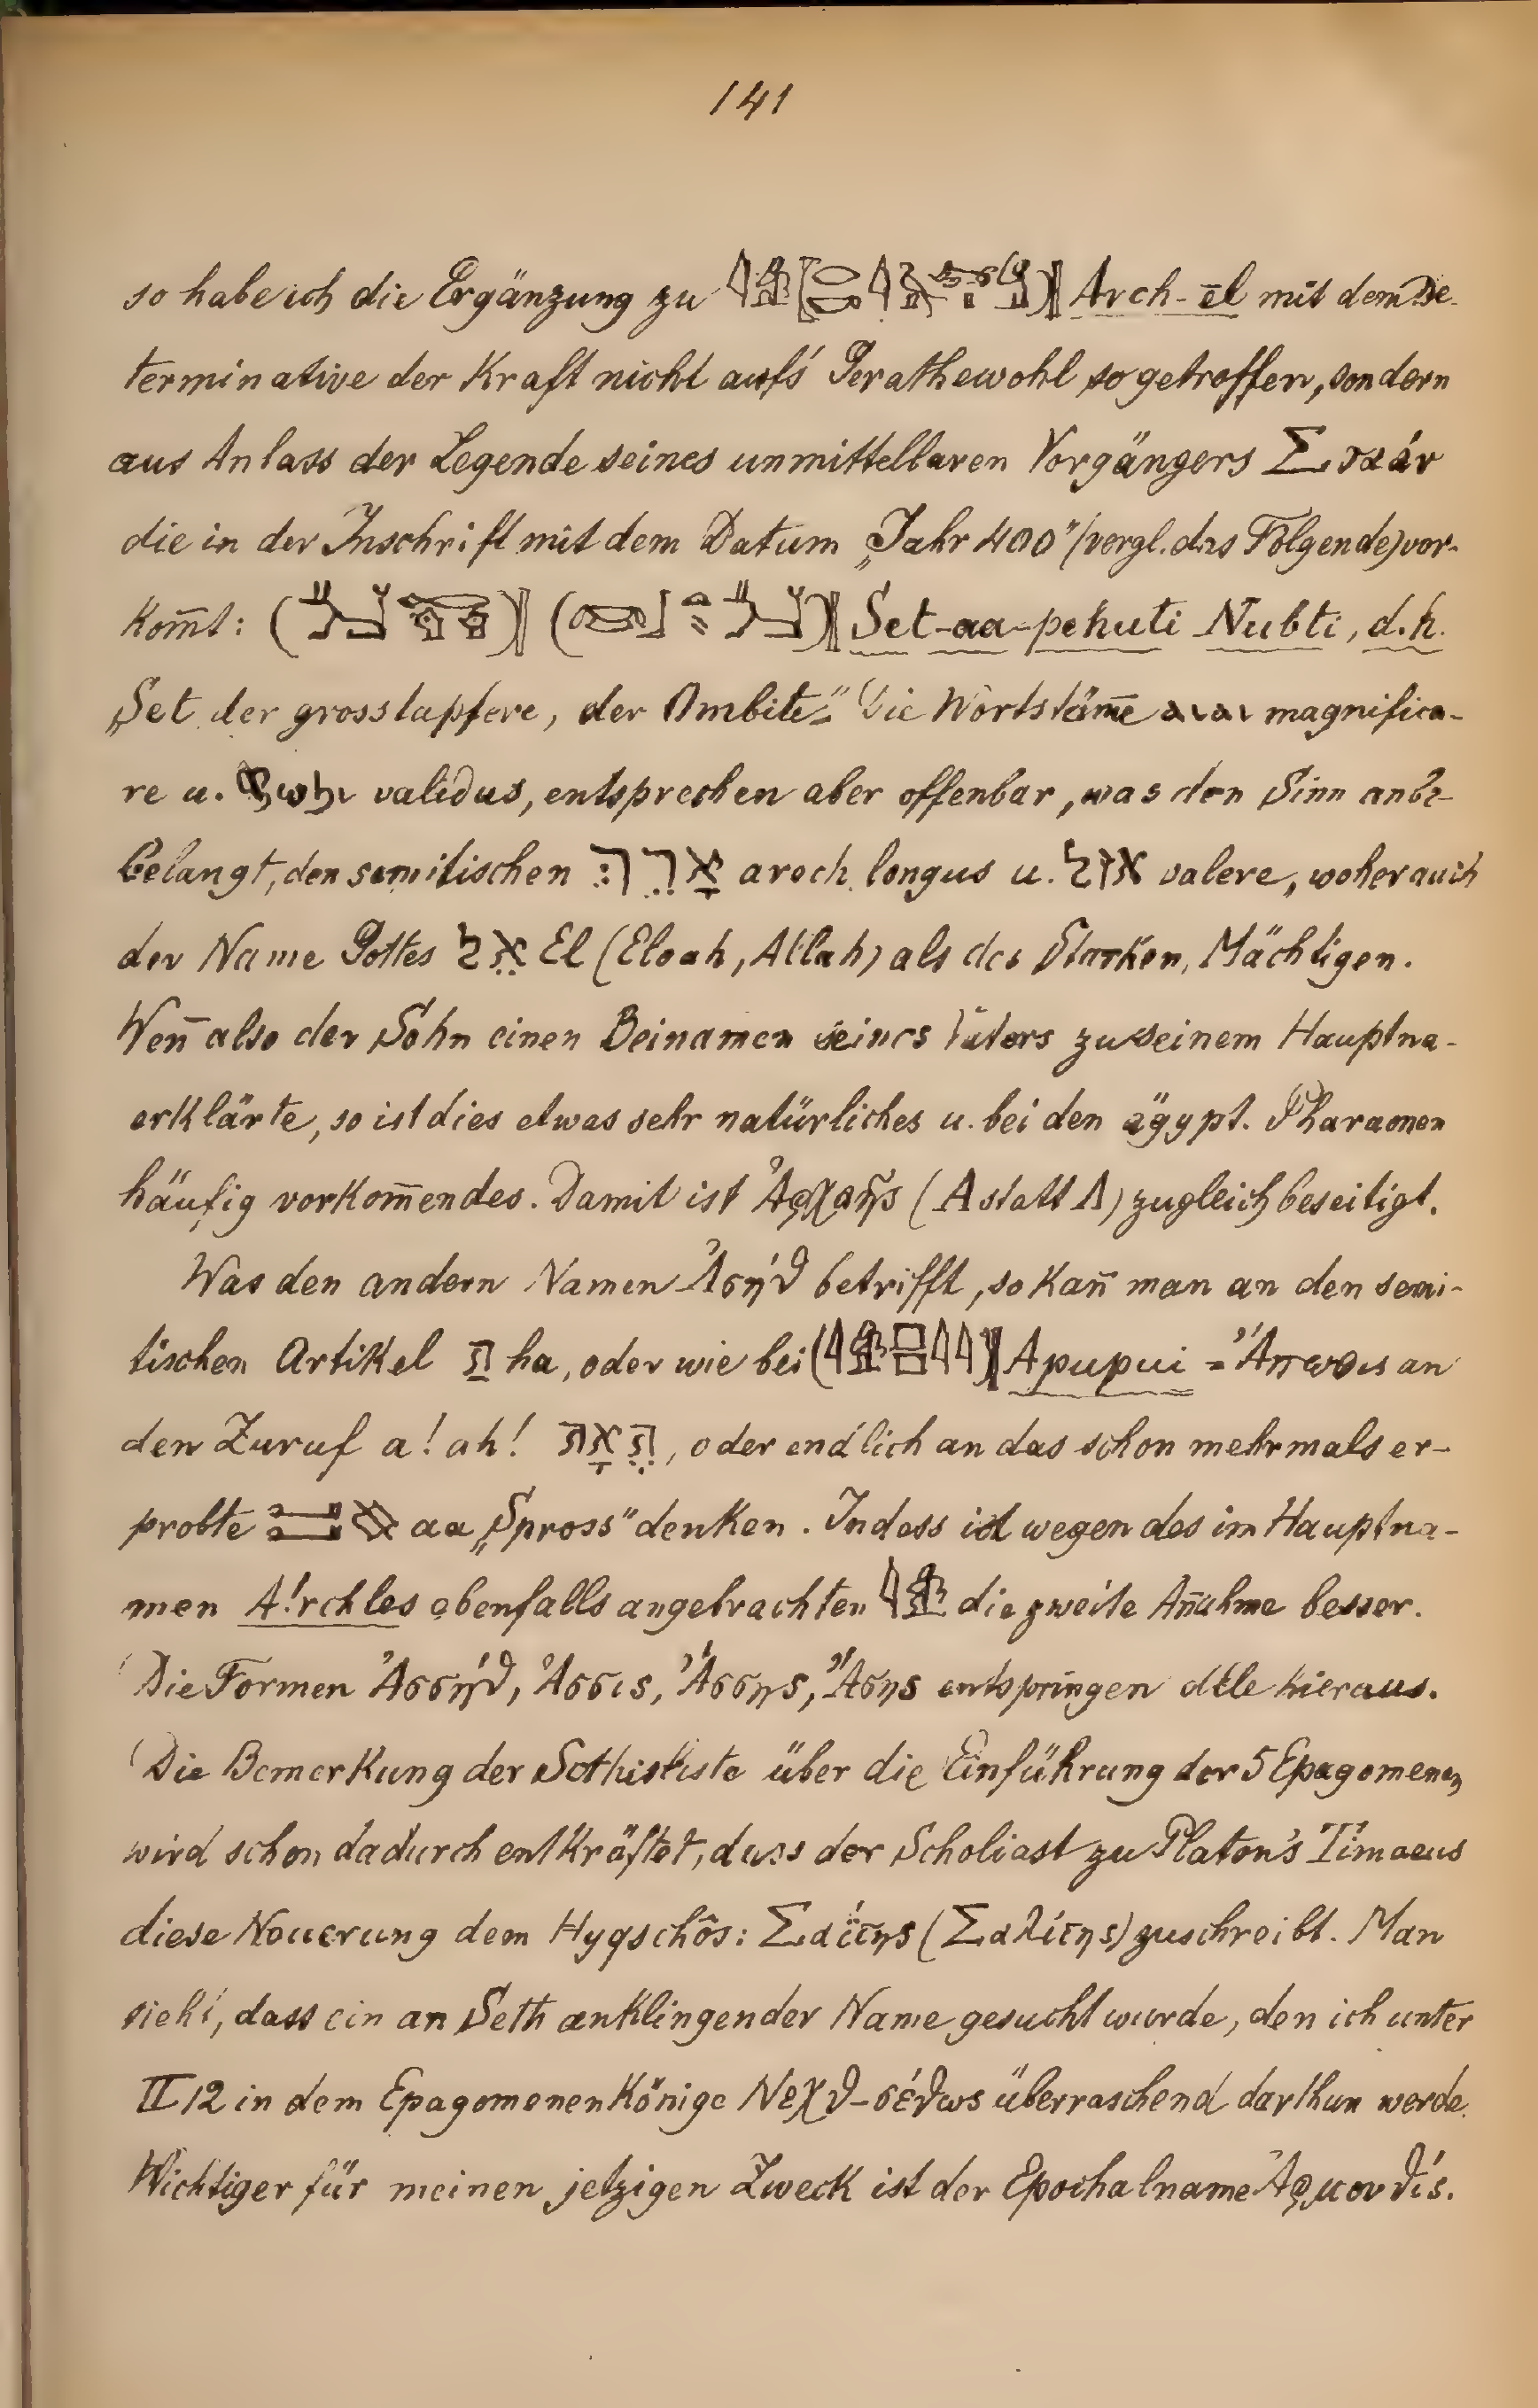 141
so habe ich die Ergänzung zu Arch-ēl mit dem De-
terminative der Kraft nicht aufs' Gerathewohl so getroffen, sondern
aus Anlass der Legende seines unmittelbaren Vorgängers Σταάν
die in der Inschrift mit dem Datum „Jahr 400" (vergl. das Folgende) vor-
kom̄t: Set-aa-pehuti Nubti, d.h.
„Set der grosstapfere, der Ombite." Die Wortstäm̄e ⲁⲓⲁⲓ magnifica-
re u. validus, entsprechen aber offenbar, was den Sinn anbe-
belangt, den semitischen ארך aroch longus u. אול valere, woher auch
der Name Gottes אל El (Eloah, Allah) als des Starken, Mächtigen.
Wen̄ also der Sohn einen Beinamen seines Vaters zu seinem Hauptna-
erklärte, so ist dies etwas sehr natürliches u. bei den ägypt. Pharaonen
häufig vorkom̄endes. Damit ist Ἀρχαῆς (Α statt Λ) zugleich beseitigt.
Was den andern Namen Ἀσήθ betrifft, so kan̄ man an den semi-
tischen Artikel ה ha, oder wie bei Apupui = Ἄπωφις an
den Zuruf a! ah! האח, oder endlich an das schon mehrmals er-
probte aa „Spross" denken. Indess ist wegen des im Hauptna-
men A!rchles ebenfalls angebrachten die zweite An̄ahme besser.
Die Formen Ἀσσήθ, Ἀσσις, Ἄσσης, Ἄσης entspringen alle hieraus.
Die Bemerkung der Sothisliste über die Einführung der 5 Epagomenen
wird schon dadurch entkräftet, dass der Scholiast zu Platon's Timaeus
diese Neuerung dem Hyqschôs: Σαΐτης (Σαλίτης) zuschreibt. Man
sieht, dass ein an Seth anklingender Name gesucht wurde, den ich unter
II 12 in dem Epagomenenkönige Νεχθ-σέθως überraschend darthun werde.
Wichtiger für meinen jetzigen Zweck ist der Epochalname Ἀρμουθίς.